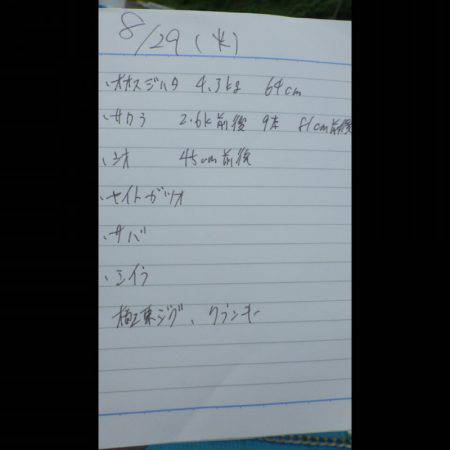 8/29 (水)
・オオスジハタ 4.3kg 64cm
・サワラ 2.6k前後 9本 81cm前後
・シオ 45cm前後
・ヤイトガツオ
・サバ
・シイラ
ジグ、クランキー